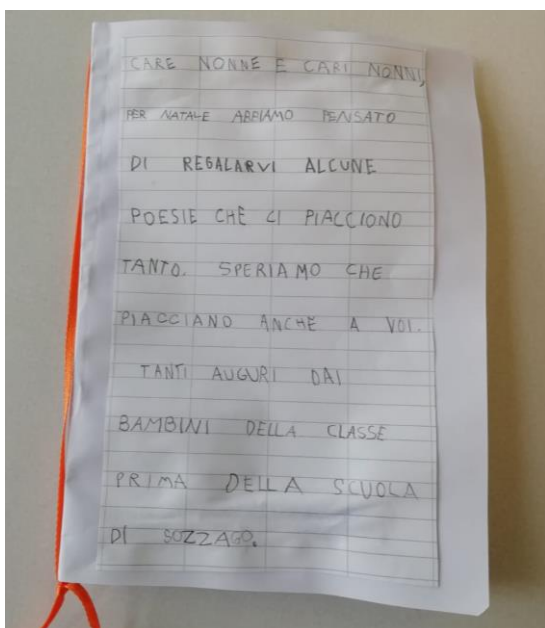 CARE NONNE E CARI NONNI,
PER NATALE ABBIAMO PENSATO
DI REGALARVI ALCUNE
POESIE CHE CI PIACCIONO
TANTO. SPERIAMO CHE
PIACCIANO ANCHE A VOI.
TANTI AUGURI DAI
BAMBINI DELLA CLASSE
PRIMA DELLA SCUOLA
DI SOZZAGO.